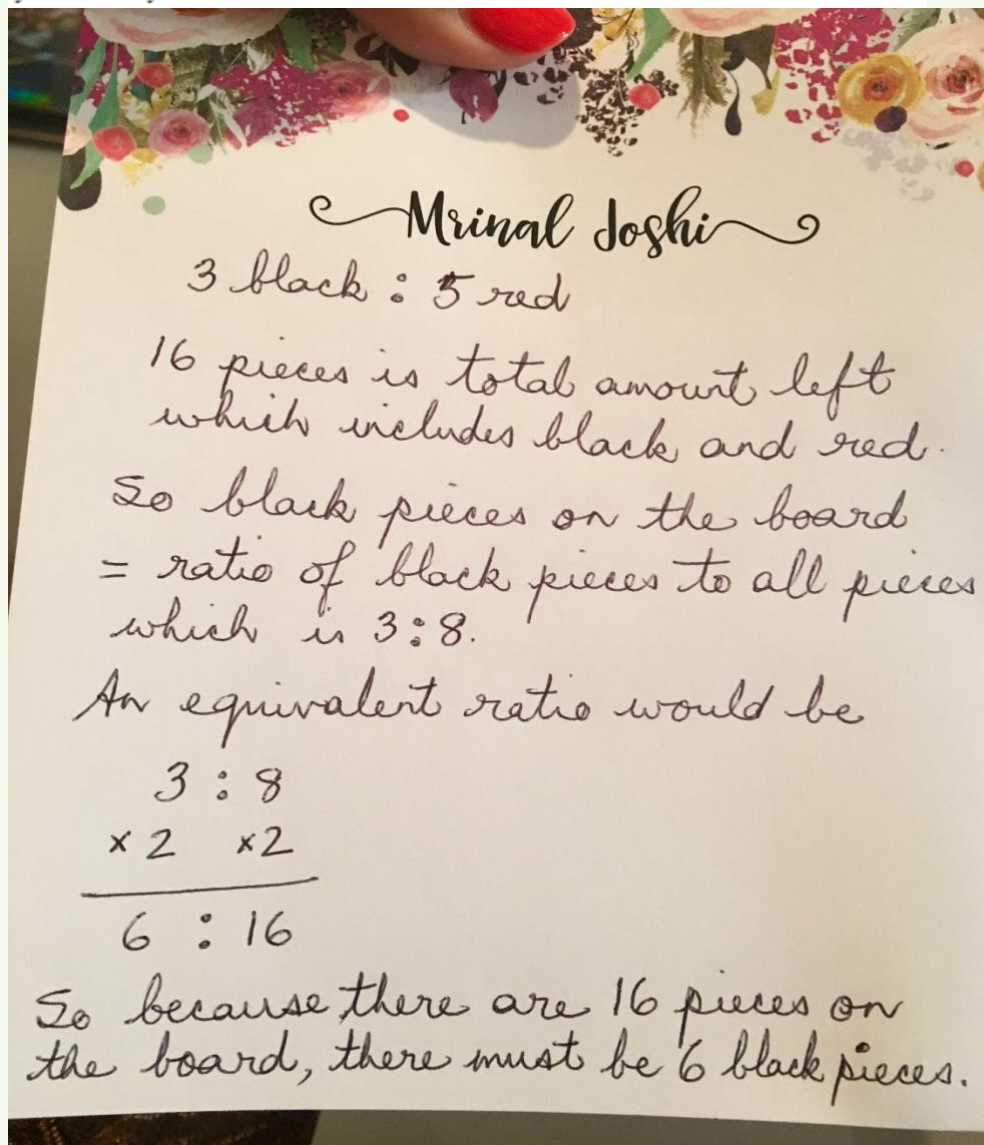 Mrinal Joshi
3 black : 5 red
16 pieces is total amount left
which includes black and red.
So black pieces on the board
= ratio of black pieces to all pieces
which is 3:8.
An equivalent ratio would be
3 : 8
x 2 x2
6 : 16
So because there are 16 pieces on
the board, there must be 6 black pieces.